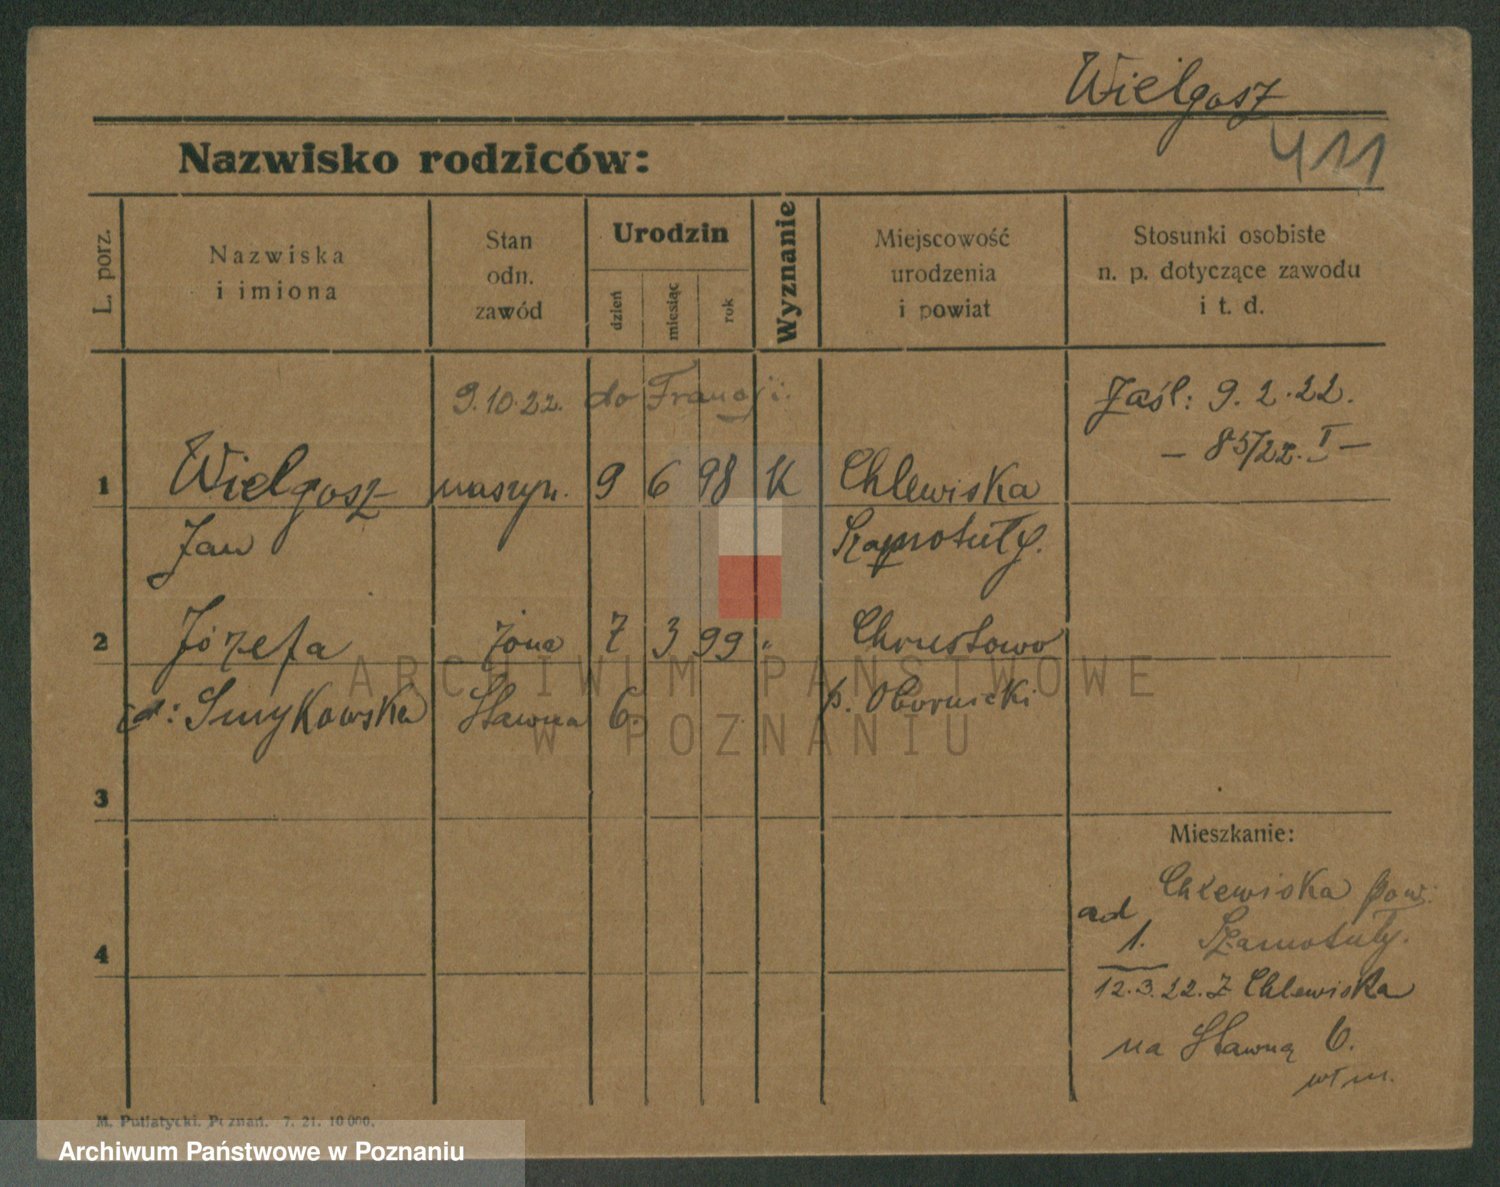 Wielgosz
411
Nazwisko rodziców:
L. porz.
Nazwiska
i imiona
Stan
odn.
zawód
Urodzin
dzień
miesiąc
rok
Wyznanie
Miejscowość
urodzenia
i powiat
Stosunki osobiste
n. p. dotyczące zawodu
i t. d.
9.10.22. do Francji.
Zaśl: 9.2.22.
— 85/22. I —
1 Wielgosz maszyn. 9 6 98 K Chlewiska
Jan Szamotuły.
2 Józefa żona 7 3 99 " Chrustowo
Smykowska Sławna 6. p. Obornicki
3
Mieszkanie:
Chlewiska pow.
ad 1. Szamotuły.
4
12.3.22. Z Chlewiska
na Sławną 6.
wł m.
M. Putiatycki. Poznań. 7. 21. 10 000.
ARCHIWUM PAŃSTWOWE
W POZNANIU
Archiwum Państwowe w Poznaniu